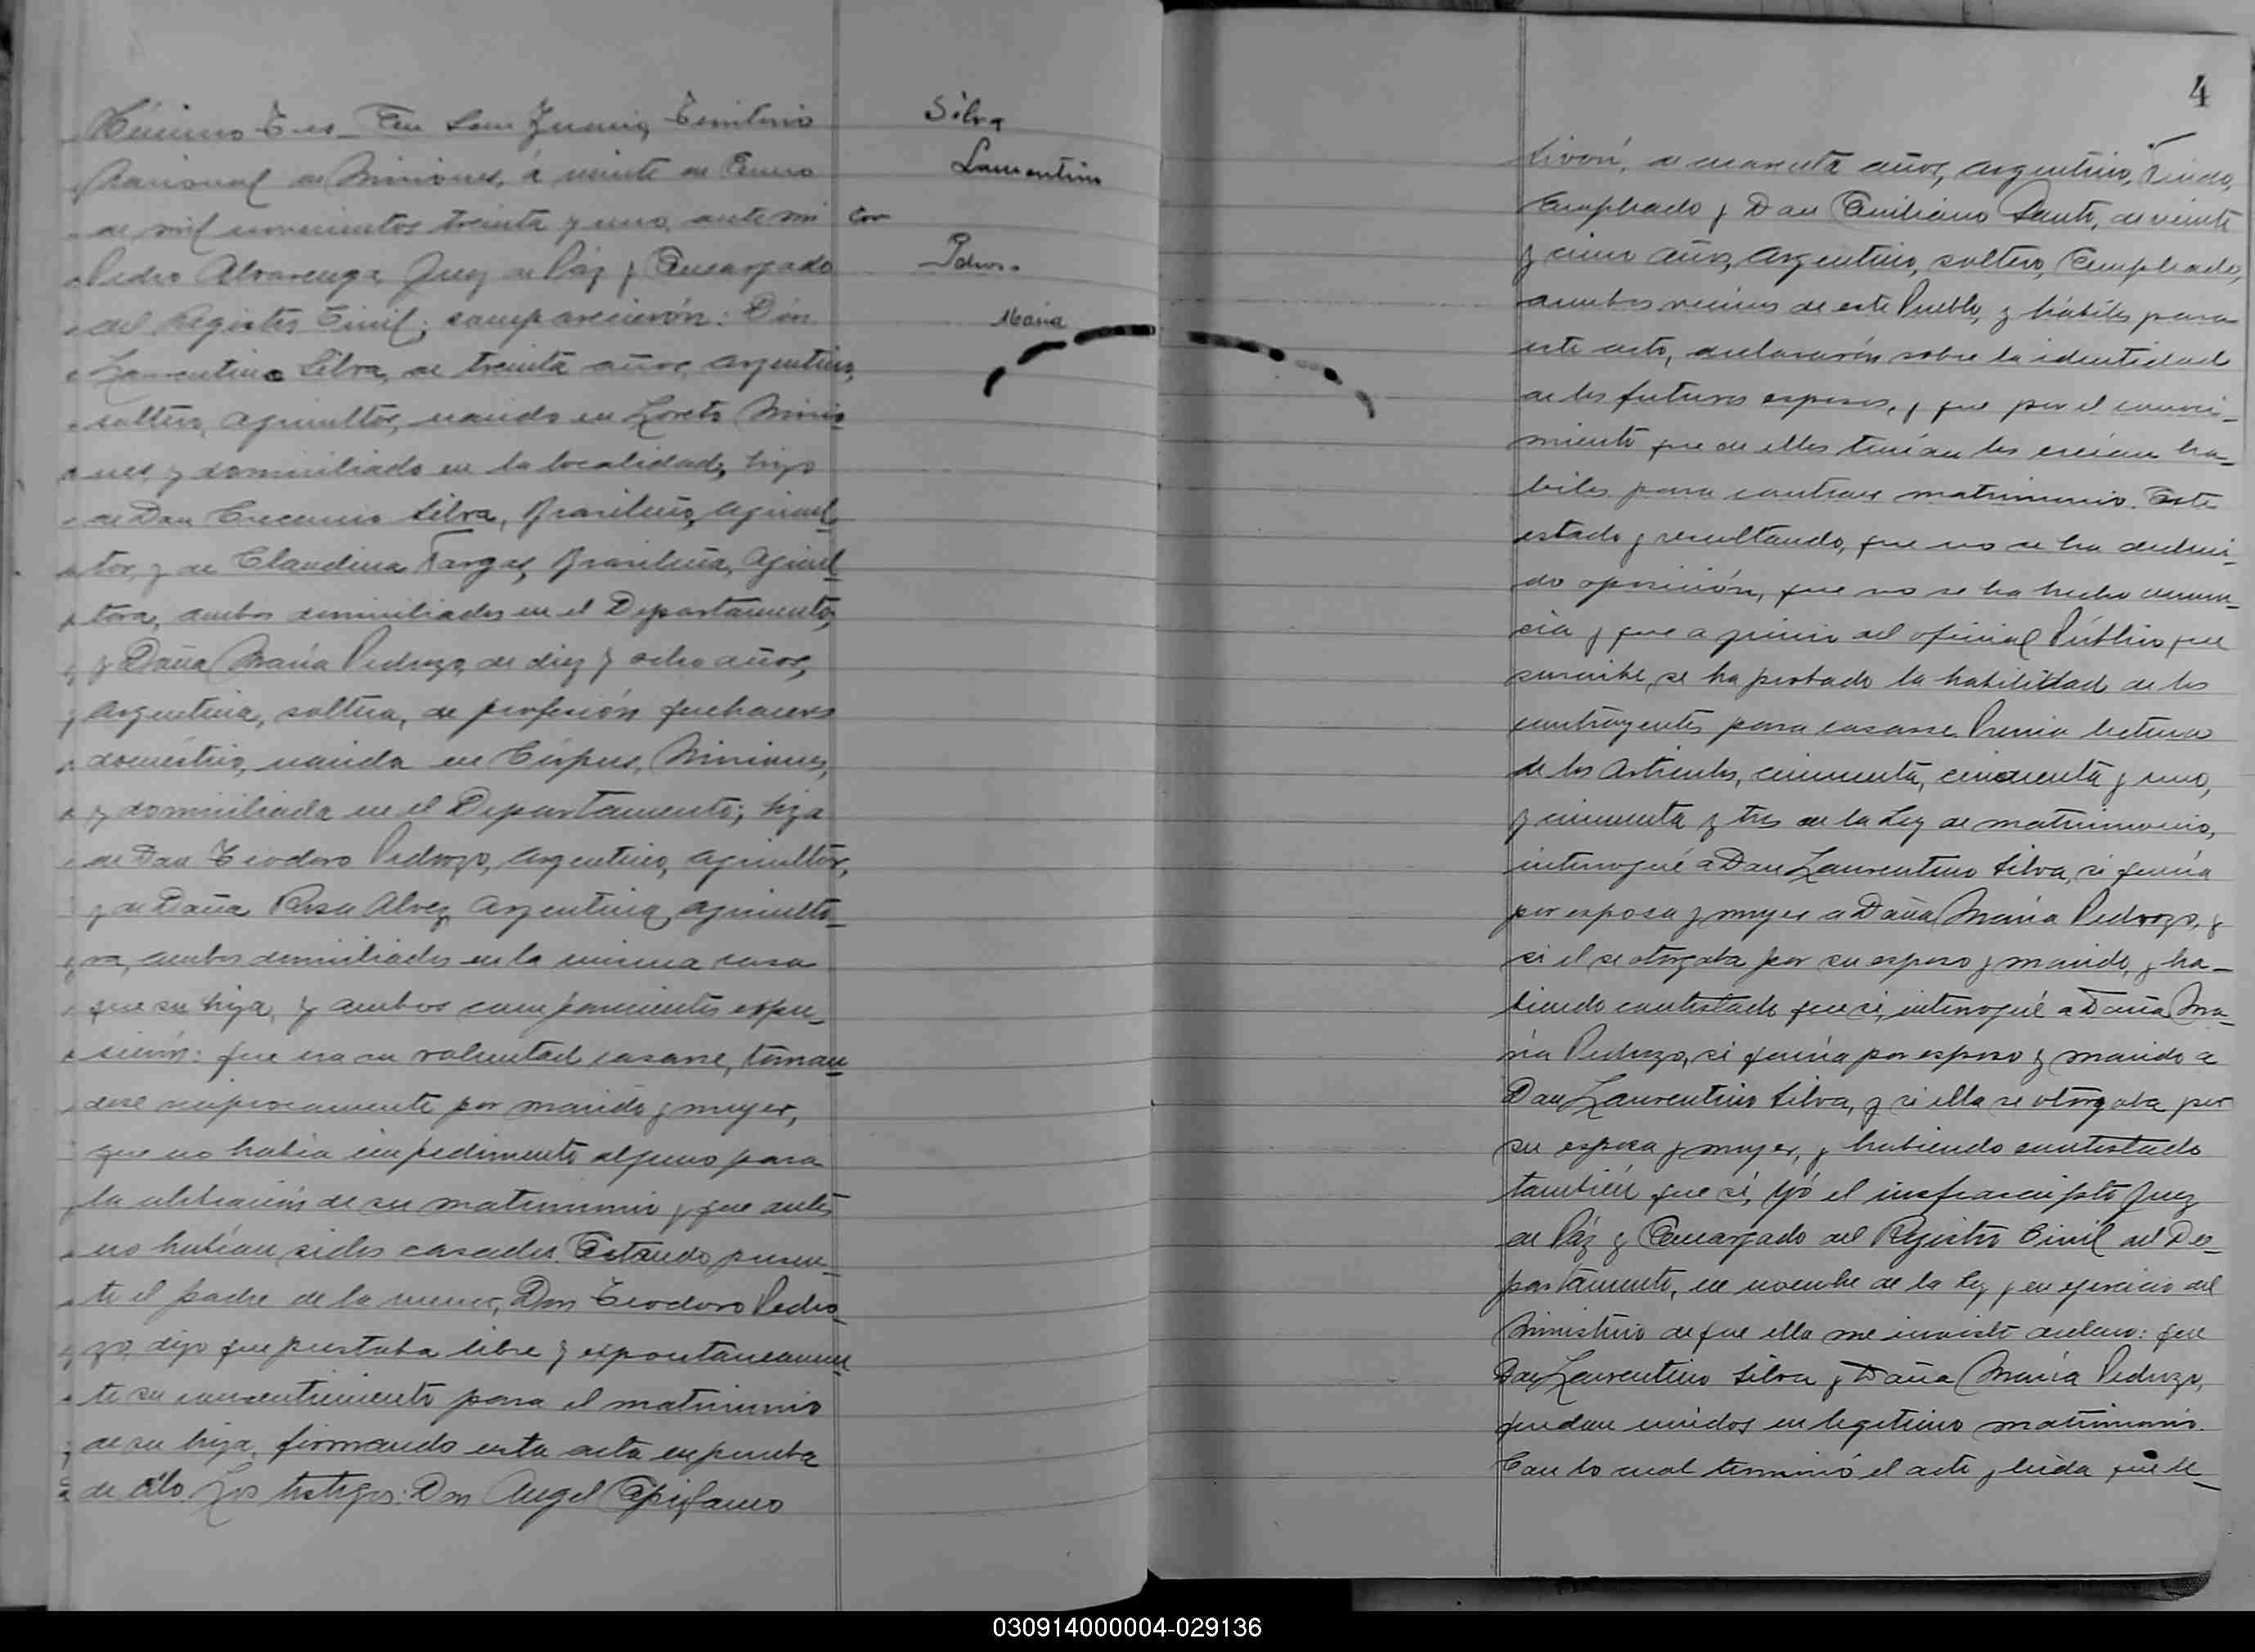 Número Tres En San Ignacio, Territorio
Nacional de Misiones, á veinte de Enero
de mil novecientos treinta y uno, ante mi
Pedro Alvarenga Juez de Páz y Encargado
del Registro Civil; comparecierón: Dón
Laurentino Silva, de treinta años, argentino,
soltero, agricultor, nacido en Loreto Misio-
nes, y domiciliado en la localidad, hijo
de Don Silva, Brasileño, agricul-
tor, y de Claudina Vargas, Brasileña, agricul-
tora, ambos domiciliados en el Departamento,
y Doña María Pedrozo, de diez y ocho años,
argentina, soltera, de profesión quehaceres
doméstico, nacida en Córpus, Misiones,
y domiciliada en el Departamento; hija
de Don Teodoro Pedrozo, argentino, agricultor,
y de Doña Rosa Alvez, argentina, agriculto-
ra, ambos domiciliados en la misma casa
que su hija, y ambos comparecientes expu-
sierón: que era su voluntad casarse, toman-
dose reciprocamente por marido y mujer,
que no había impedimento alguno para
la celebración de su matrimonio y que antes
no habían sidos casados. Estando presen-
te el padre de la menor, Don Teodoro Pedro-
zo, dijo que prestaba libre y espontaneamen-
te su consentimiento para el matrimonio
de su hija, firmando esta acta en prueba
de ello. Los testigos: Don Angel Epifanio
Silva
Laurentino
con
Pedrozo
María
4
de cuarenta años, argentino, Viudo,
Empleado y Don Emiliano Santo, de veinte
y cinco años, argentino, soltero, Empleado,
ambos vecinos de este Pueblo, y hábiles para
este acto, declararón sobre la identidad
de los futuros esposos, y que por el conoci-
miento que de ellos tenían los creían ha-
biles para contraer matrimonio. Este
estado y resultando, que no se ha deduci-
do oposición, que no se ha hecho denun-
cia y que a juicio del oficial Público que
suscribe, se ha probado la habilidad de los
contrayentes para casarse. Previa lectura
de los Artículos, cincuenta, cincuenta y uno,
y cincuenta y tres de la Ley de matrimonio,
interrogué a Don Laurentino Silva, si quería
por esposa y mujer a Doña María Pedrozo, y
si el se otorgaba por su esposo y marido, y ha-
biendo contestado que sí, interrogué a Doña Ma-
ría Pedrozo, si quería por esposo y marido a
Don Laurentino Silva, y si ella se otorgaba por
su esposa y mujer, y habiendo contestado
también que sí, yó el infrascripto Juez
de Páz y Encargado del Registro Civil del De-
partamento, en nombre de la ley y en ejercicio del
Ministerio de que ella me inviste declaro: que
Don Laurentino Silva y Doña María Pedrozo,
quedan unidos en legitimo matrimonio.
Con lo cual terminó el acto y leída que le-
030914000004-029136